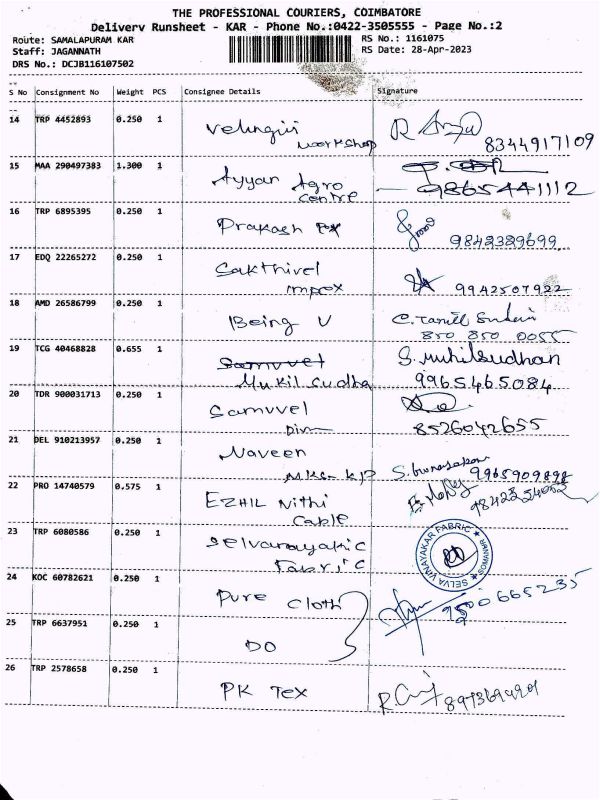 THE PROFESSIONAL COURIERS, COIMBATORE
Delivery Runsheet - KAR - Phone No.:0422-3505555 - Page No.:2
Route: SAMALAPURAM KAR
RS No.: 1161075
Staff: JAGANNATH
RS Date: 28-Apr-2023
DRS No.: DCJB116107502
S No Consignment No Weight PCS Consignee Details Signature
14 TRP 4452893 0.250 1 Velingiri
workshop 8344917109
15 MAA 290497383 1.300 1 Ayyan Agro
Centre 9865441112
16 TRP 6895395 0.250 1 Prakash
9842329699
17 EDQ 22265272 0.250 1 Sakthivel
Impex 9942507922
18 AMD 26586799 0.250 1 Being U C. Tamil
850 850 0055
19 TCG 40468828 0.655 1 Samuvel S. Mukilsudhan
Mukil Sudha 9965465084
20 TDR 900031713 0.250 1 Samuvel
8526042655
21 DEL 910213957 0.250 1 Naveen
9965909898
22 PRO 14740579 0.575 1 Ezhil Nithi
Cable
23 TRP 6080586 0.250 1 Selvanayakic
Fabric
SELVA VINAYAKAR FABRIC
24 KOC 60782621 0.250 1 Pure Cloth
25 TRP 6637951 0.250 1 DO
26 TRP 2578658 0.250 1 PK Tex